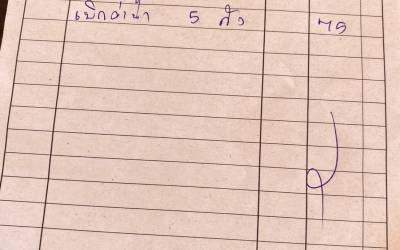 เบิกค่าน้ำ 5 ถัง 75